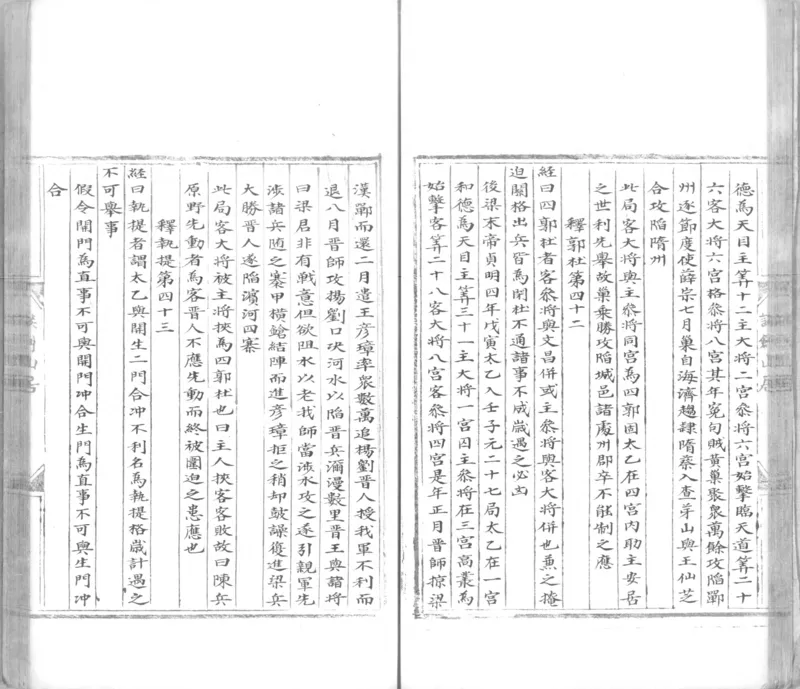 德為天目主筭十二主大將二宮叅將六宮始擊臨天道筭二十
六客大將六宮格叅將八宮其年寃句賊黃巢聚衆萬餘攻陷鄆
州逐節度使薛崇七月巢自海濟趨隷隋蔡入查芽山與王仙芝
合攻陷隋州
此局客大將與主叅將同宮為四郭固太乙在四宮內助主安居
之世利先舉故巢乘勝攻陷城邑諸處州郡卒不能制之應
釋郭杜第四十二
經曰四郭杜者客叅將與文昌併或主叅將與客大將併也兼之掩
迫關格出兵皆為閉杜不通諸事不成歲遇之必凶
後梁末帝貞明四年戊寅太乙入壬子元二十七局太乙在一宮
和德為天目主筭三十一主大將一宮囚主叅將在三宮高叢為
始擊客筭二十八客大將八宮客叅將四宮是年正月晉師掠梁
漢鄆而還二月遣王彦璋率衆數萬追楊劉晉人授我軍不利而
退八月晉師攻揚劉口决河水以陷晉兵瀰漫數里晉王與諸將
曰梁君非有戰意但欲阻水以老我師當涉水攻之遂引親軍先
涉諸兵随之寨甲橫鎗結陣而進彦璋拒之稍却鼓譟復進梁兵
大勝晉人遂陷濱河四寨
此局客大將被主將挾為四郭杜也曰主人挾客客敗故曰陳兵
原野先動者為客晉人不應先動而終被圍迫之患應也
釋執提第四十三
經曰執提者謂太乙與開生二門合冲不利名為執提格歲計遇之
不可舉事
假令開門為直事不可與開門冲合生門為直事不可與生門冲
合